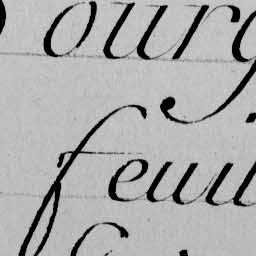 ourg
feuil